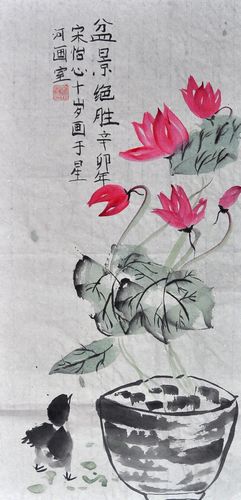 盆景绝胜辛卯年
宋怡心十岁画于星
河画室